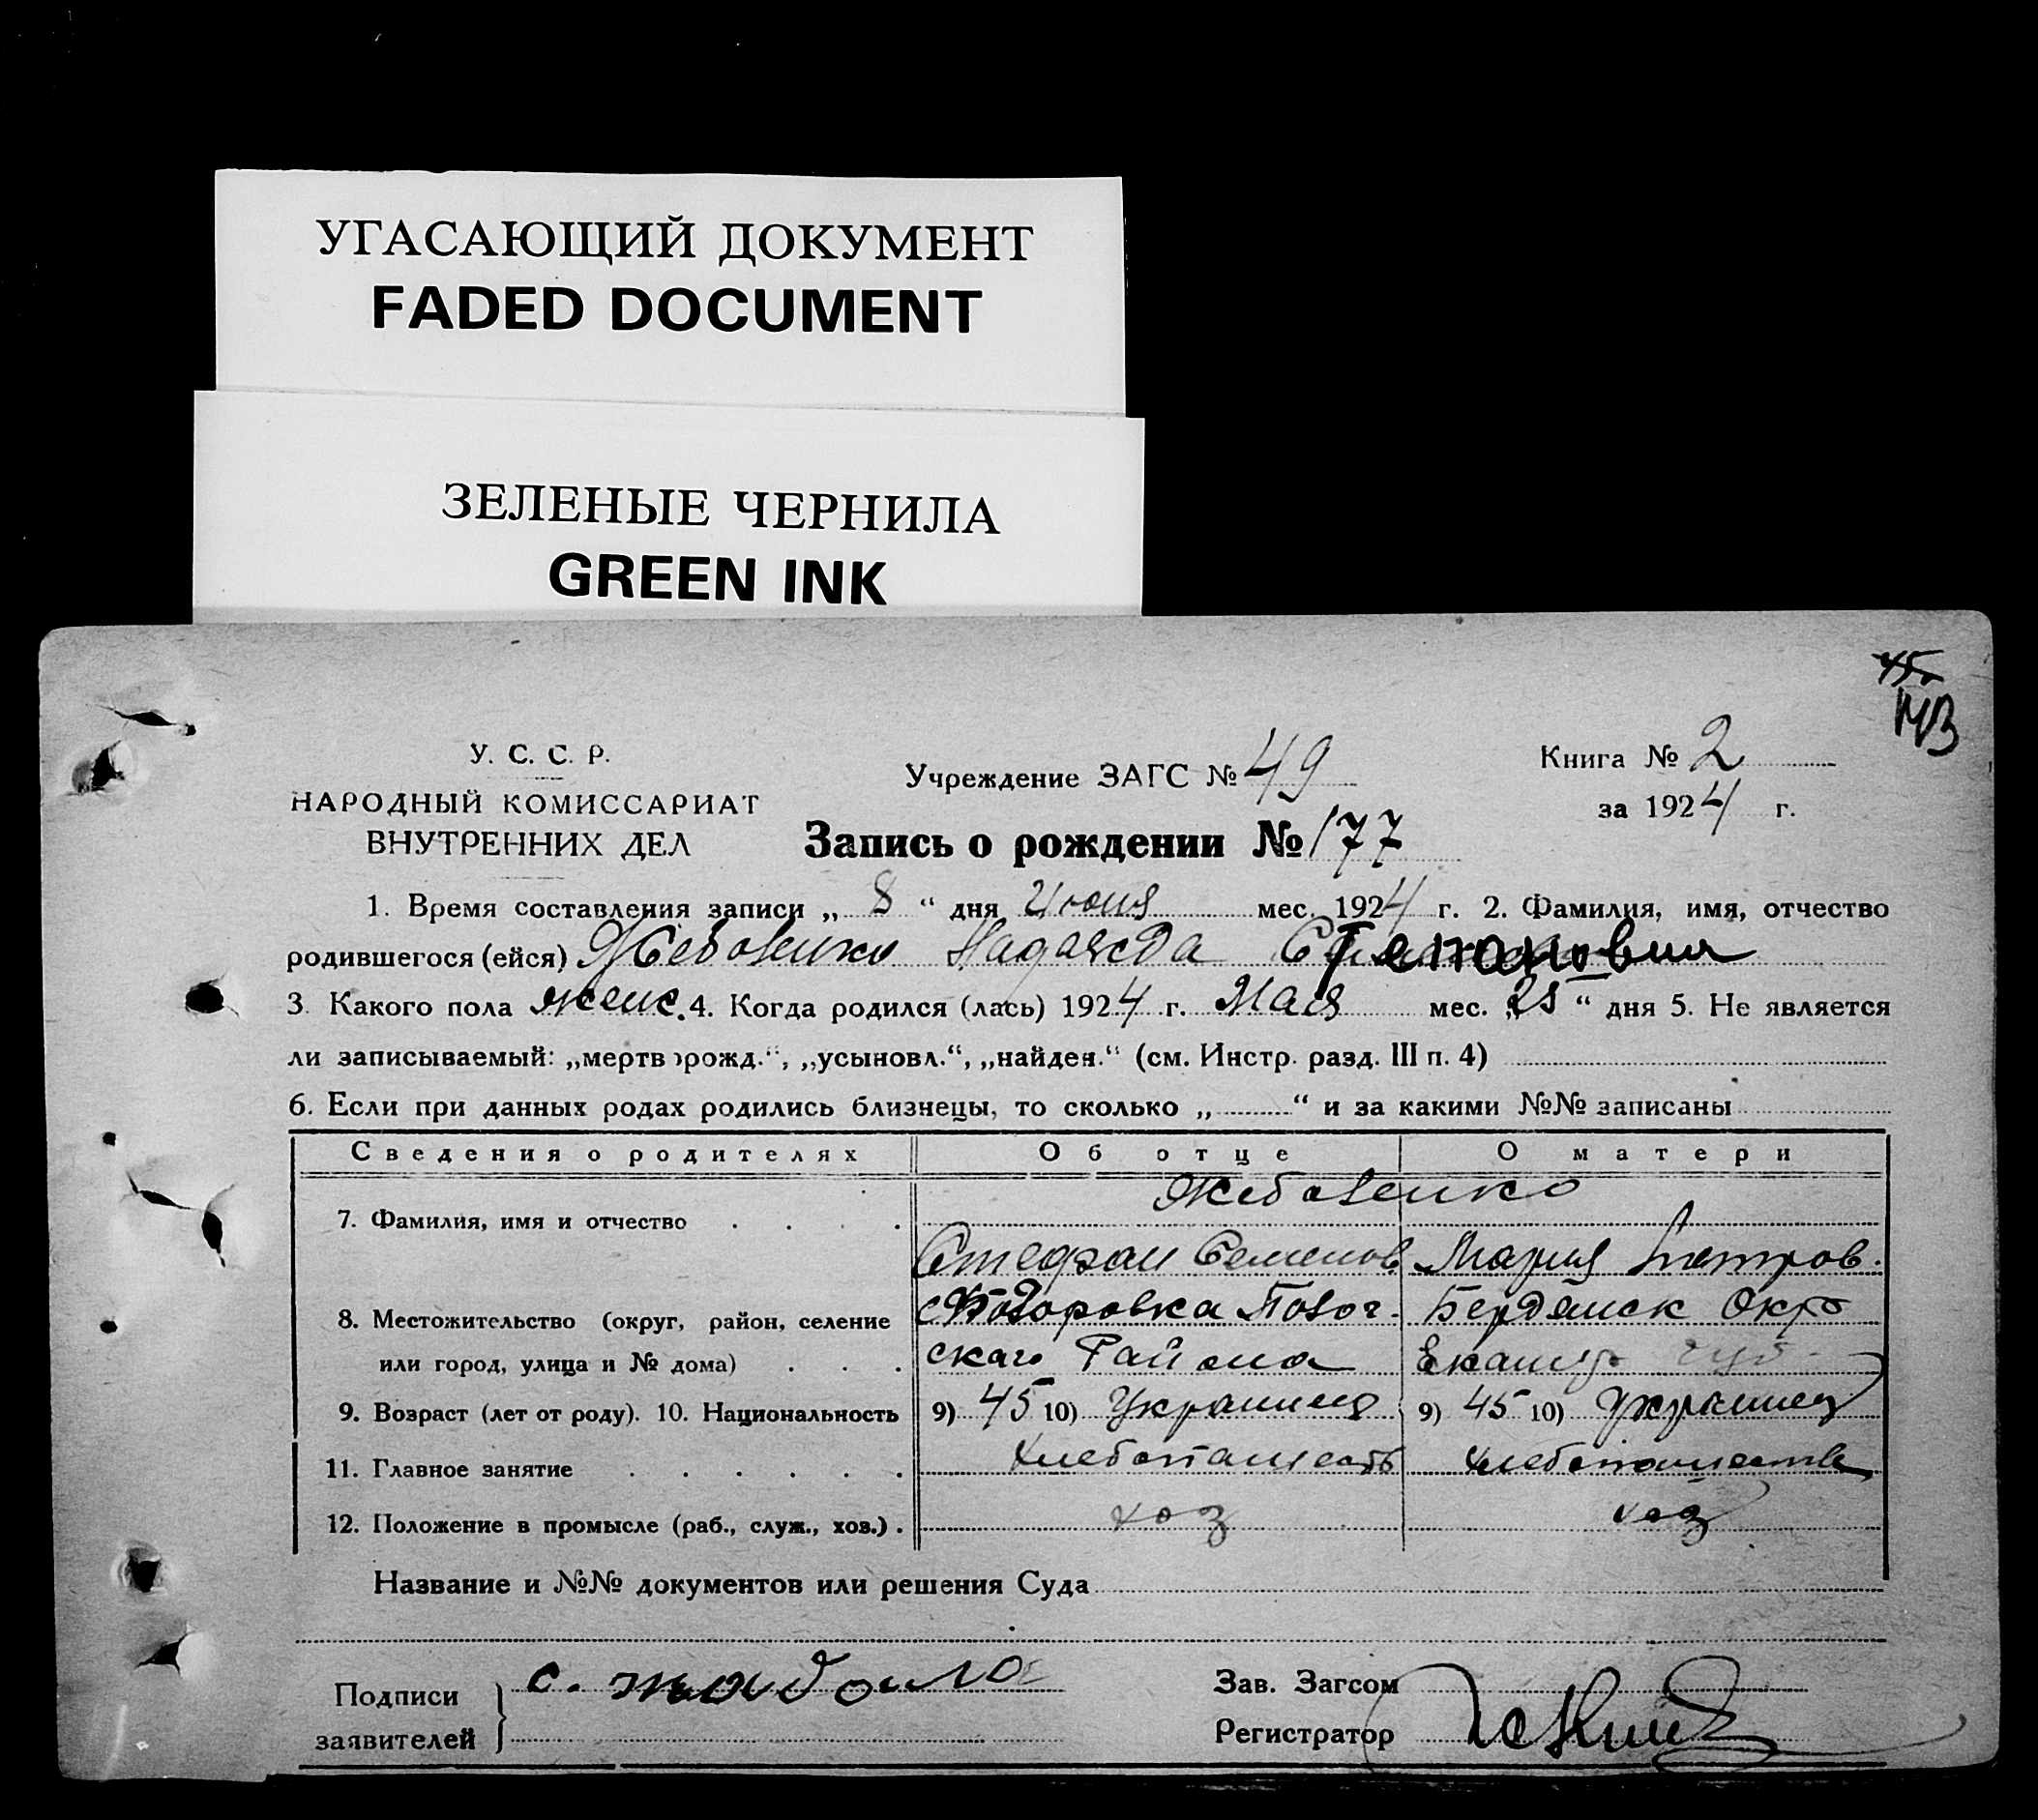 УГАСАЮЩИЙ ДОКУМЕНТ
FADED DOCUMENT
ЗЕЛЕНЫЕ ЧЕРНИЛА
GREEN INK
45
143
У. С. С. Р.
НАРОДНЫЙ КОМИССАРИАТ
ВНУТРЕННИХ ДЕЛ
Учреждение ЗАГС № 49
Книга № 2
за 1924 г.
Запись о рождении № 177
1. Время составления записи „ 8 “ дня Июня мес. 1924 г. 2. Фамилия, имя, отчество
родившегося (ейся) Надежда Степановна
3. Какого пола женс. 4. Когда родился (лась) 1924 г. Мая мес. „25“ дня 5. Не является
ли записываемый: „мертворожд.“, „усыновл.“, „найден.“ (см. Инстр. разд. III п. 4)
6. Если при данных родах родились близнецы, то сколько „ “ и за какими №№ записаны
Сведения о родителях Об отце О матери
7. Фамилия, имя и отчество
Стефан Семенов. Мария Петров.
8. Местожительство (округ, район, селение Бердянск Окр
или город, улица и № дома) скаго Района
9. Возраст (лет от роду). 10. Национальность 9) 45 10) 9) 45 10)
11. Главное занятие
12. Положение в промысле (раб., служ., хоз.). хоз хоз
Название и №№ документов или решения Суда
Подписи
заявителей
Зав. Загсом
Регистратор